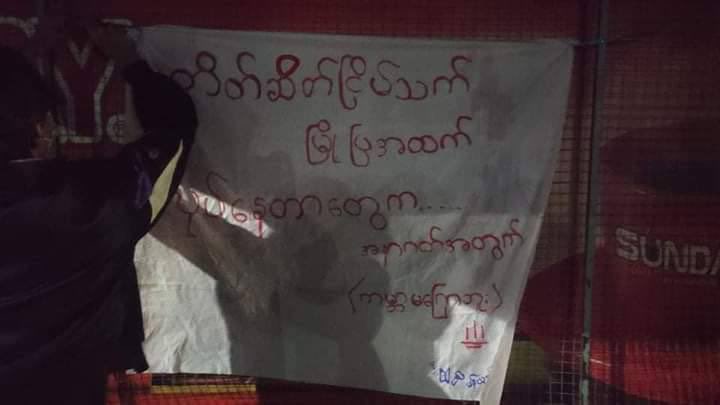 တိတ်ဆိတ်ငြိမ်သက်
မြို့ပြအထက်
လုပ်နေတာတွေက....
အနာဂတ်အတွက်
(ကမ္ဘာမကြေဘူး)
SUNDA